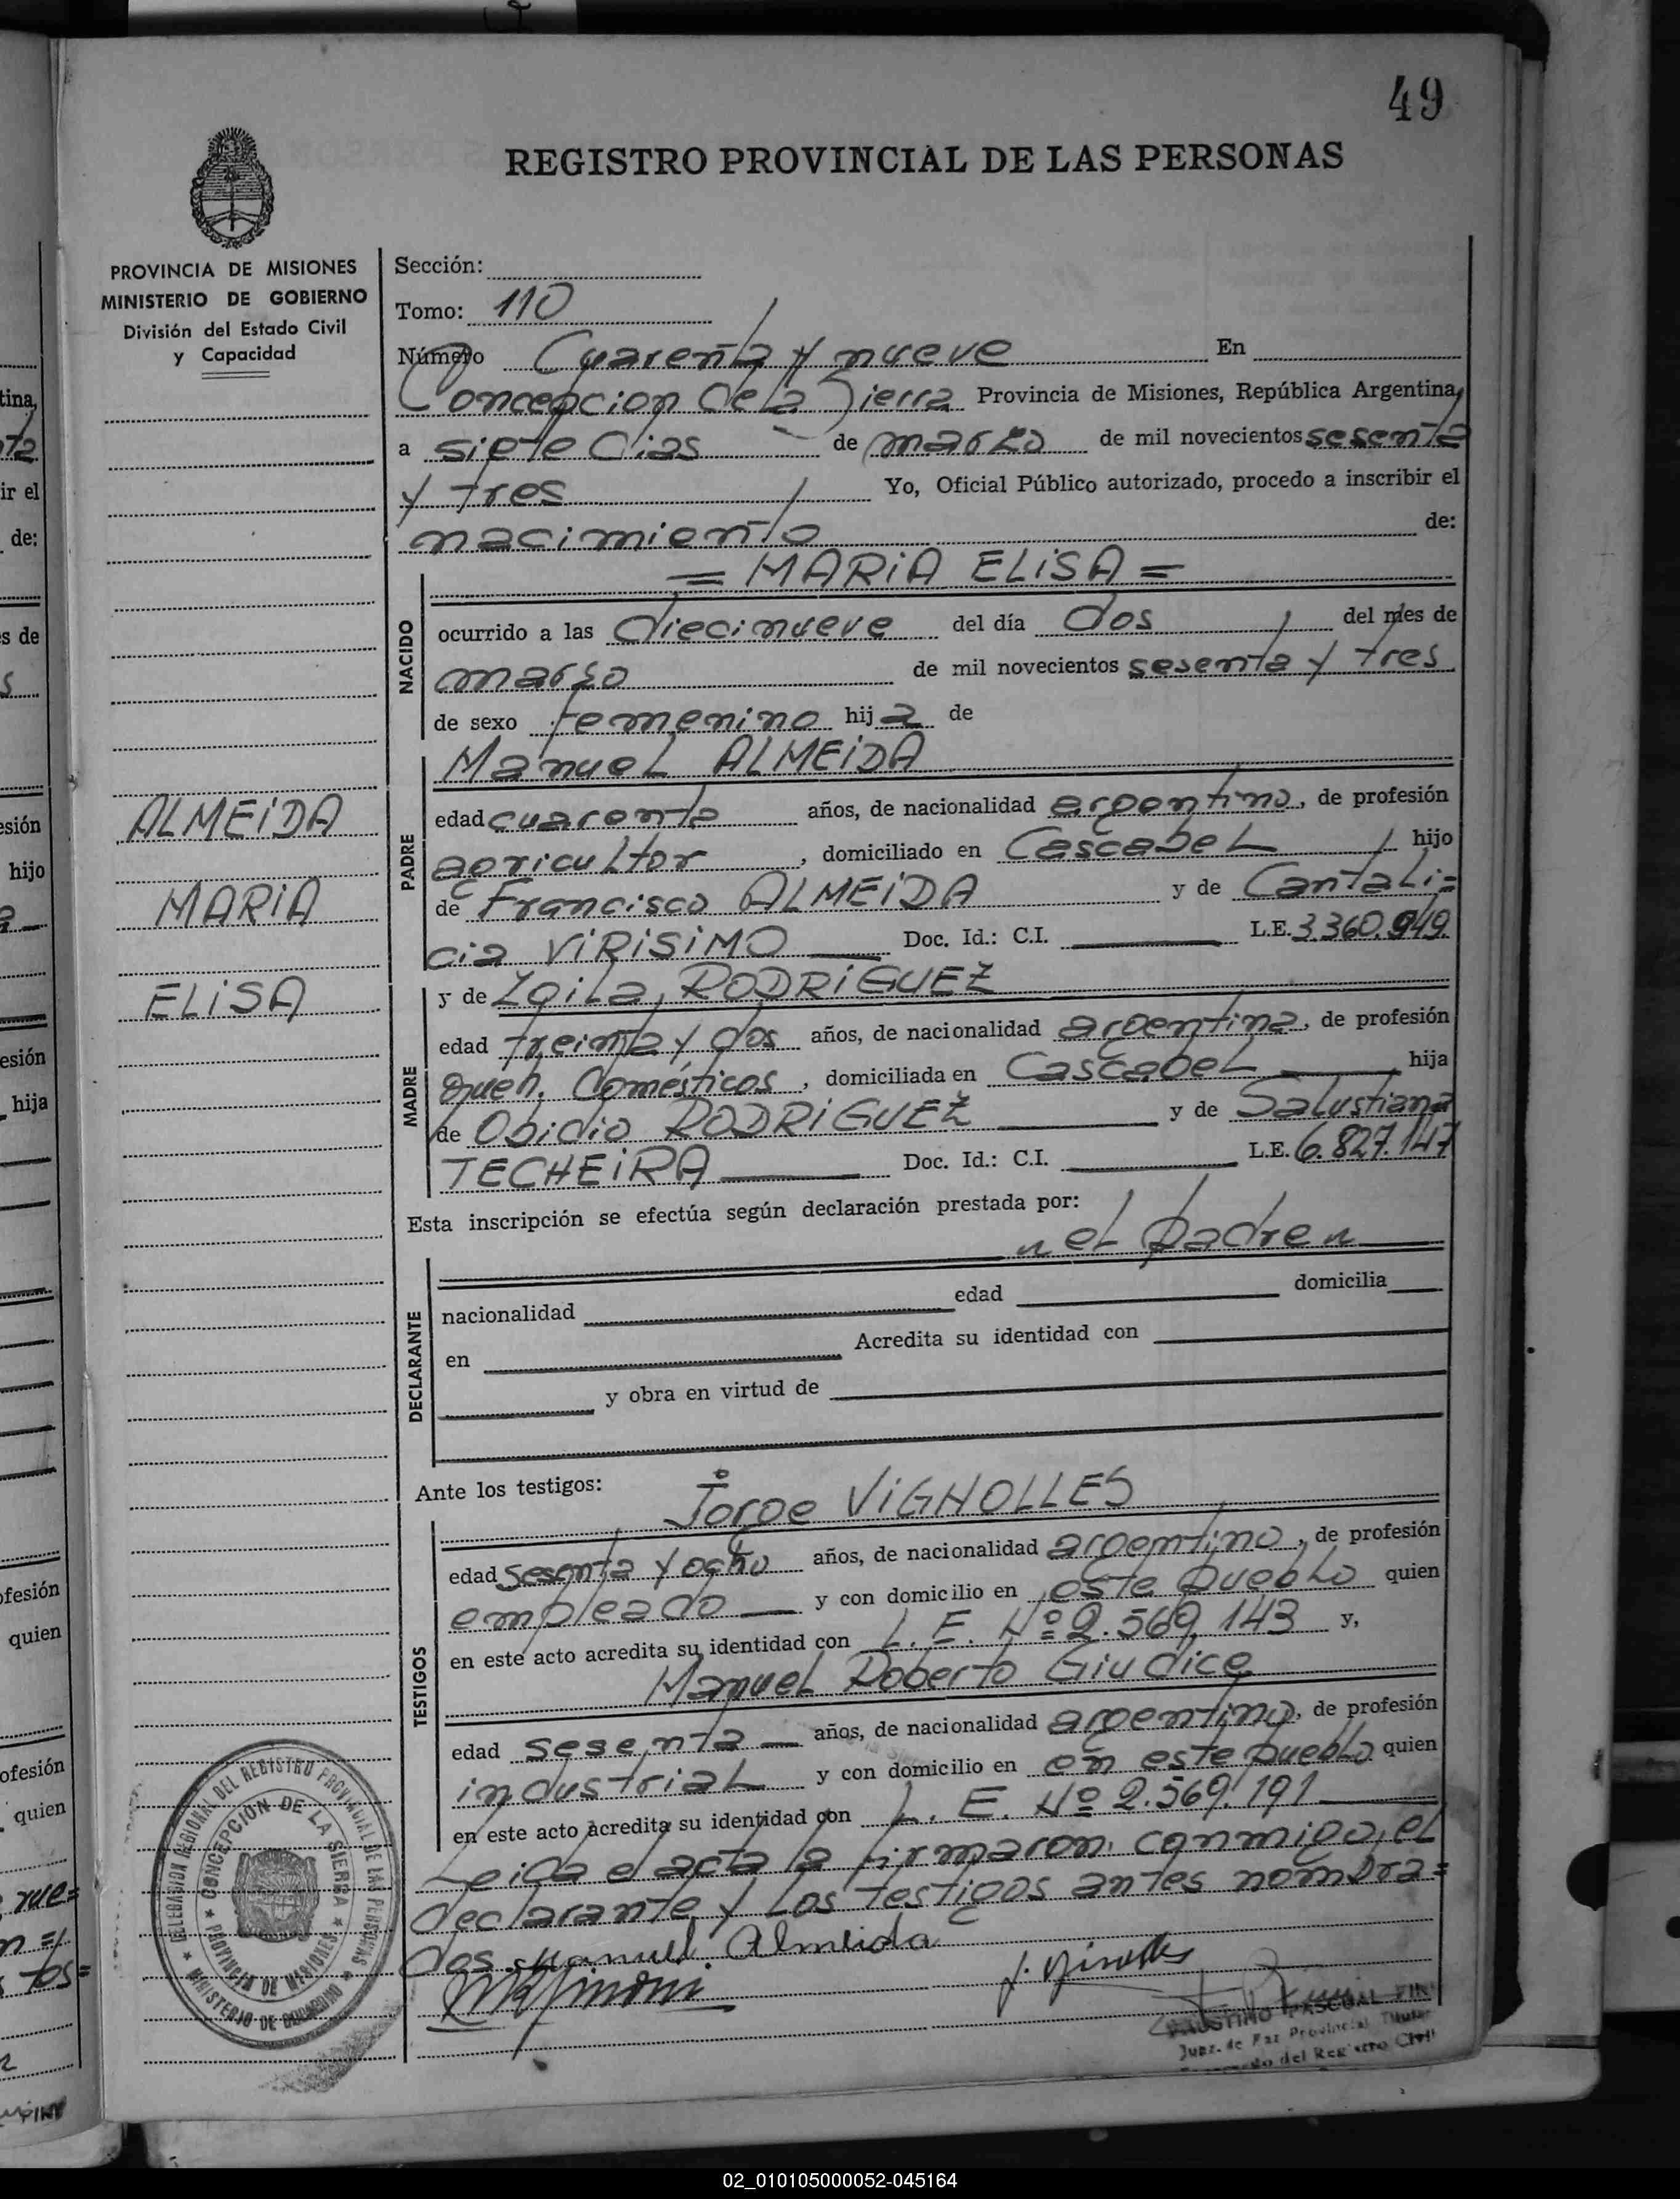 49
REGISTRO PROVINCIAL DE LAS PERSONAS
PROVINCIA DE MISIONES
MINISTERIO DE GOBIERNO
División del Estado Civil
y Capacidad
ALMEIDA
MARIA
ELISA
Sección:
Tomo: 110
Número Cuarenta y nueve En
Concepcion de la Sierra Provincia de Misiones, República Argentina,
a siete dias de marzo de mil novecientos sesenta
y tres Yo, Oficial Público autorizado, procedo a inscribir el
nacimiento de:
= MARIA ELISA =
NACIDO
ocurrido a las diecinueve del día dos del mes de
marzo de mil novecientos sesenta y tres
de sexo femenino hija de
Manuel ALMEIDA
PADRE
edad cuarenta años, de nacionalidad argentino, de profesión
agricultor, domiciliado en Cascabel hijo
de Francisco ALMEIDA y de Cantali=
cia VIRISIMO Doc. Id.: C.I. L.E. 3.360.949
y de Zoila RODRIGUEZ
MADRE
edad treinta y dos años, de nacionalidad argentina, de profesión
queh. domésticos, domiciliada en Cascabel hija
de Obidio RODRIGUEZ y de Salustiana
TECHEIRA Doc. Id.: C.I. L.E. 6.827.147
Esta inscripción se efectúa según declaración prestada por:
" el padre "
DECLARANTE
nacionalidad edad domicilia
en Acredita su identidad con
y obra en virtud de
Ante los testigos:
Jorge VIGNOLLES
TESTIGOS
edad sesenta y ocho años, de nacionalidad argentino, de profesión
empleado y con domicilio en este pueblo quien
en este acto acredita su identidad con L. E. Nº 2.569.143 y,
Manuel Roberto Giudice
edad sesenta años, de nacionalidad argentino, de profesión
industrial y con domicilio en en este pueblo quien
en este acto acredita su identidad con L. E. Nº 2.569.191
Leida el acta la firmaron conmigo, el
declarante y los testigos antes nombra=
dos. Manuel Almeida
DELEGACION REGIONAL DEL REGISTRO PROVINCIAL DE LAS PERSONAS
MINISTERIO DE GOBIERNO
CONCEPCION DE LA SIERRA
PROVINCIA DE MISIONES
FAUSTINO PASCUAL
Juez de Paz Provincial Titular
del Registro Civil
02_010105000052-045164